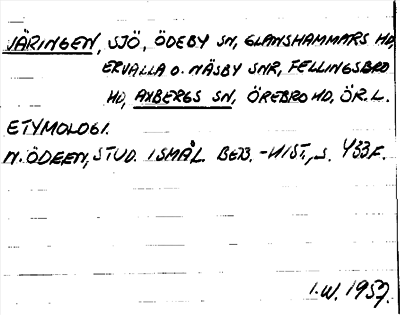 JÄRINGEN, SJÖ, ÖDEBY SN, GLANSHAMMARS HD,
ERVALLA O. NÄSBY SNR, FELLINGSBRO
HD, AXBERGS SN, ÖREBRO HD, ÖR. L.
ETYMOLOGI.
N. ÖDEEN, STUD. I SMÅL. BEB.-HIST., S. 433 F.
I.W. 1957.